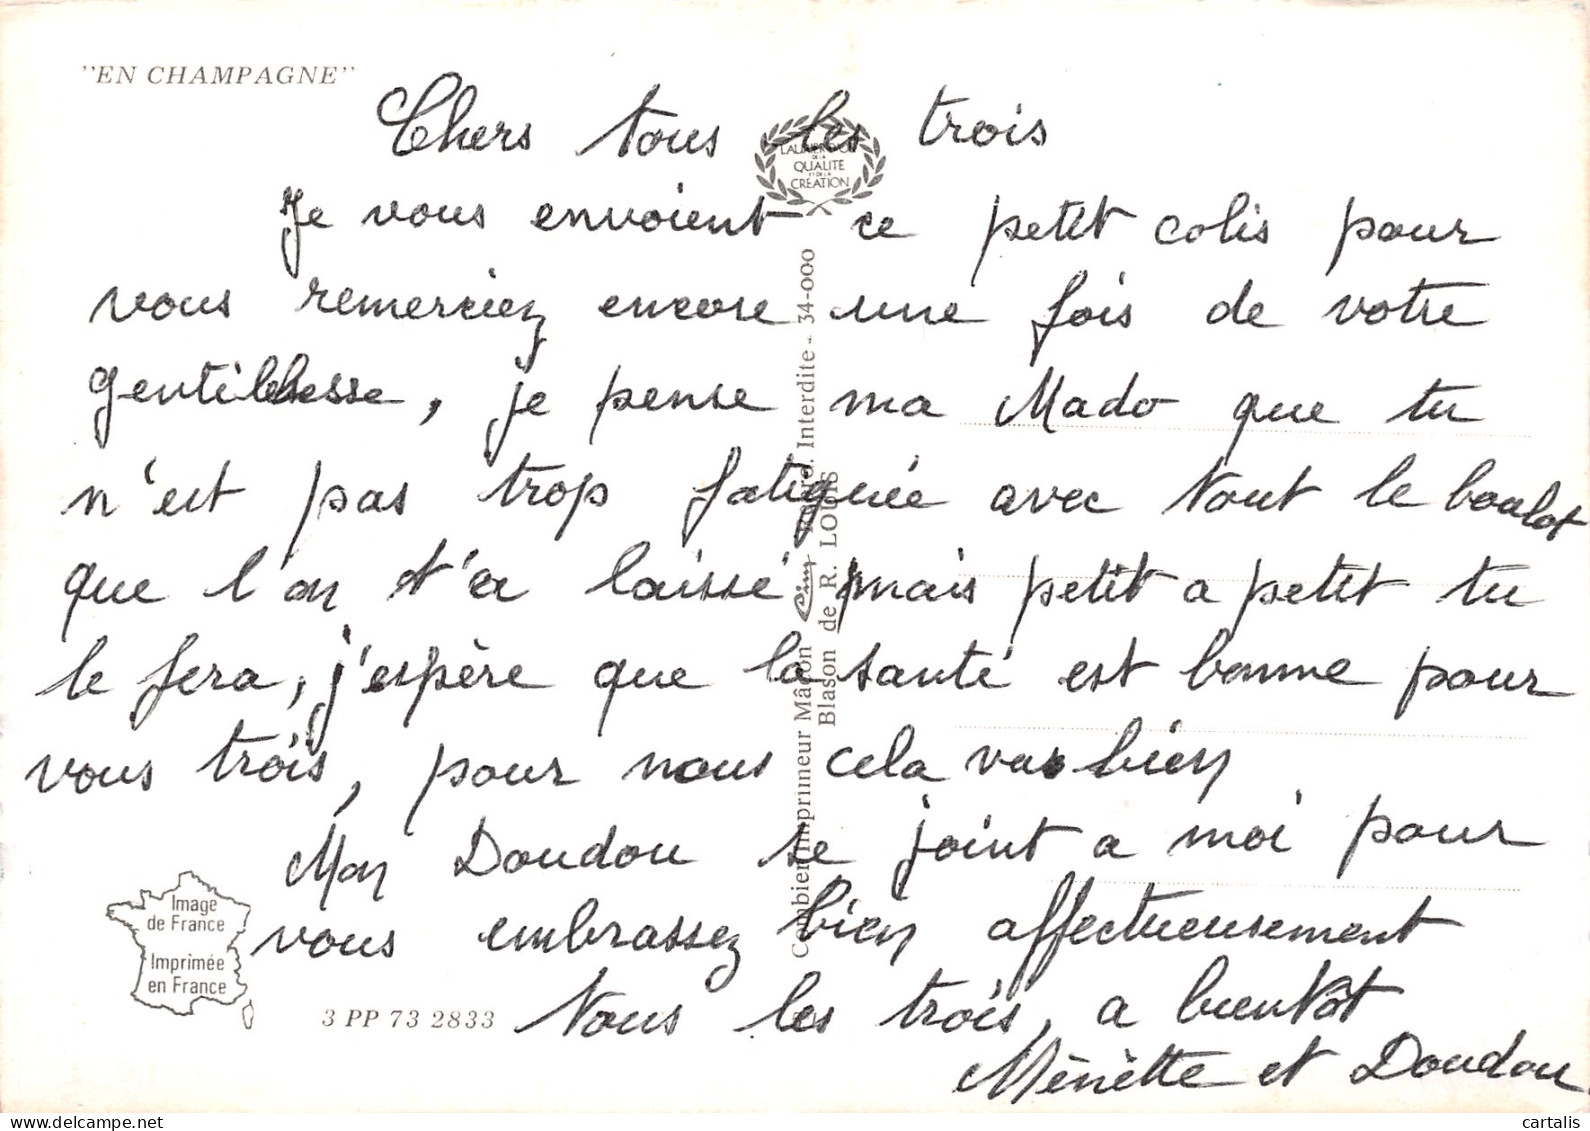 "EN CHAMPAGNE"
Chers tous les trois
LAURÉAT DU
DE LA
QUALITE
ET DE LA
CREATION
Je vous envoient ce petit colis pour
vous remerciez encore une fois de votre
gentillesse, je pense ma Mado que tu
n'est pas trop fatiguée avec tout le boulot
que l'on t'a laissé mais petit a petit tu
le fera, j'espère que la santé est bonne pour
vous trois, pour nous cela va bien
Mon Doudou se joint a moi pour
vous embrassez bien affectueusement
tous les trois, a bientôt
Ménètte et Doudou
Combier imprimeur Mâcon Cim Interdite - 34-000
Blason de R. LOUIS
Image
de France
Imprimée
en France
3 PP 73 2833
cartalis